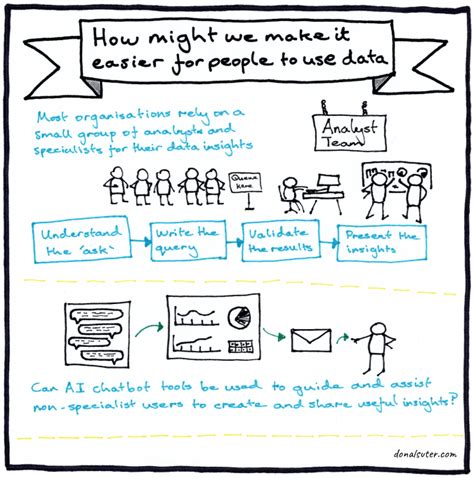 How might we make it
easier for people to use data
Most organisations rely on a
small group of analysts and
specialists for their data insights
Analyst
Team
Queue
here
Understand
the 'ask'
Write the
query
Validate
the results
Present the
insights
Can AI chatbot tools be used to guide and assist
non-specialist users to create and share useful insights?
donalsuter.com